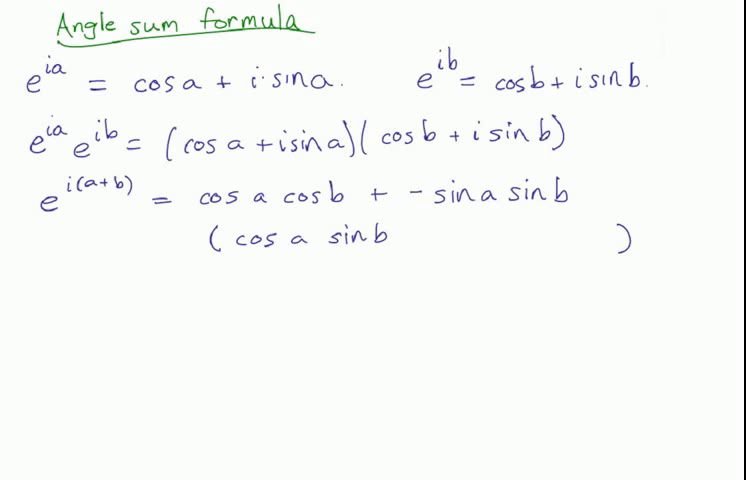 Angle sum formula
e^{ia} = cos a + i·sin a. e^{ib} = cos b + i sin b.
e^{ia} e^{ib} = (cos a + i sin a)(cos b + i sin b)
e^{i(a+b)} = cos a cos b + - sin a sin b
( cos a sin b )